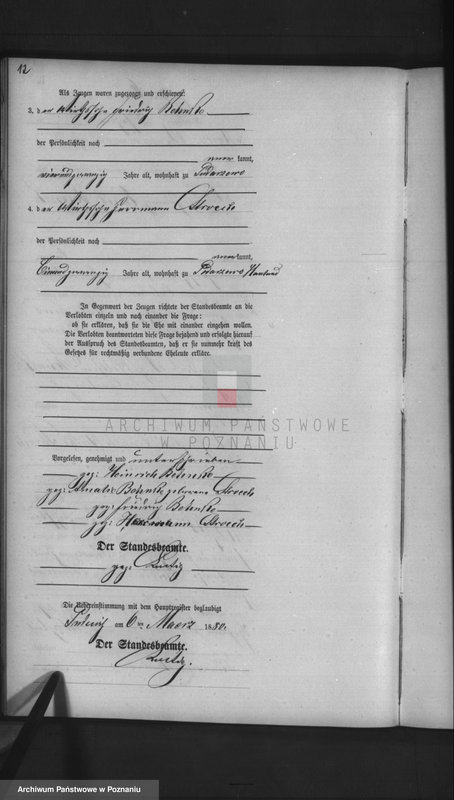 12
Als Zeugen waren zugezogen und erschienen:
3. der Wirthssohn Friedrich Behnke
der Persönlichkeit nach
kannt,
vierundzwanzig Jahre alt, wohnhaft zu
4. der Wirthssohn Herrmann
der Persönlichkeit nach
kannt,
Einundzwanzig Jahre alt, wohnhaft zu
In Gegenwart der Zeugen richtete der Standesbeamte an die
Verlobten einzeln und nach einander die Frage:
ob sie erklären, daß sie die Ehe mit einander eingehen wollen.
Die Verlobten beantworteten diese Frage bejahend und erfolgte hierauf
der Ausspruch des Standesbeamten, daß er sie nunmehr kraft des
Gesetzes für rechtmäßig verbundene Eheleute erkläre.
ARCHIWUM PAŃSTWOWE
W POZNANIU
Vorgelesen, genehmigt und unterschrieben
gez: Heinrich Behnke
gez: Behnke geborene
gez: Friedrich Behnke
gez: Herrmann
Der Standesbeamte.
gez:
Die Uebereinstimmung mit dem Hauptregister beglaubigt
am 6ten Maerz 1880.
Der Standesbeamte.
Archiwum Państwowe w Poznaniu